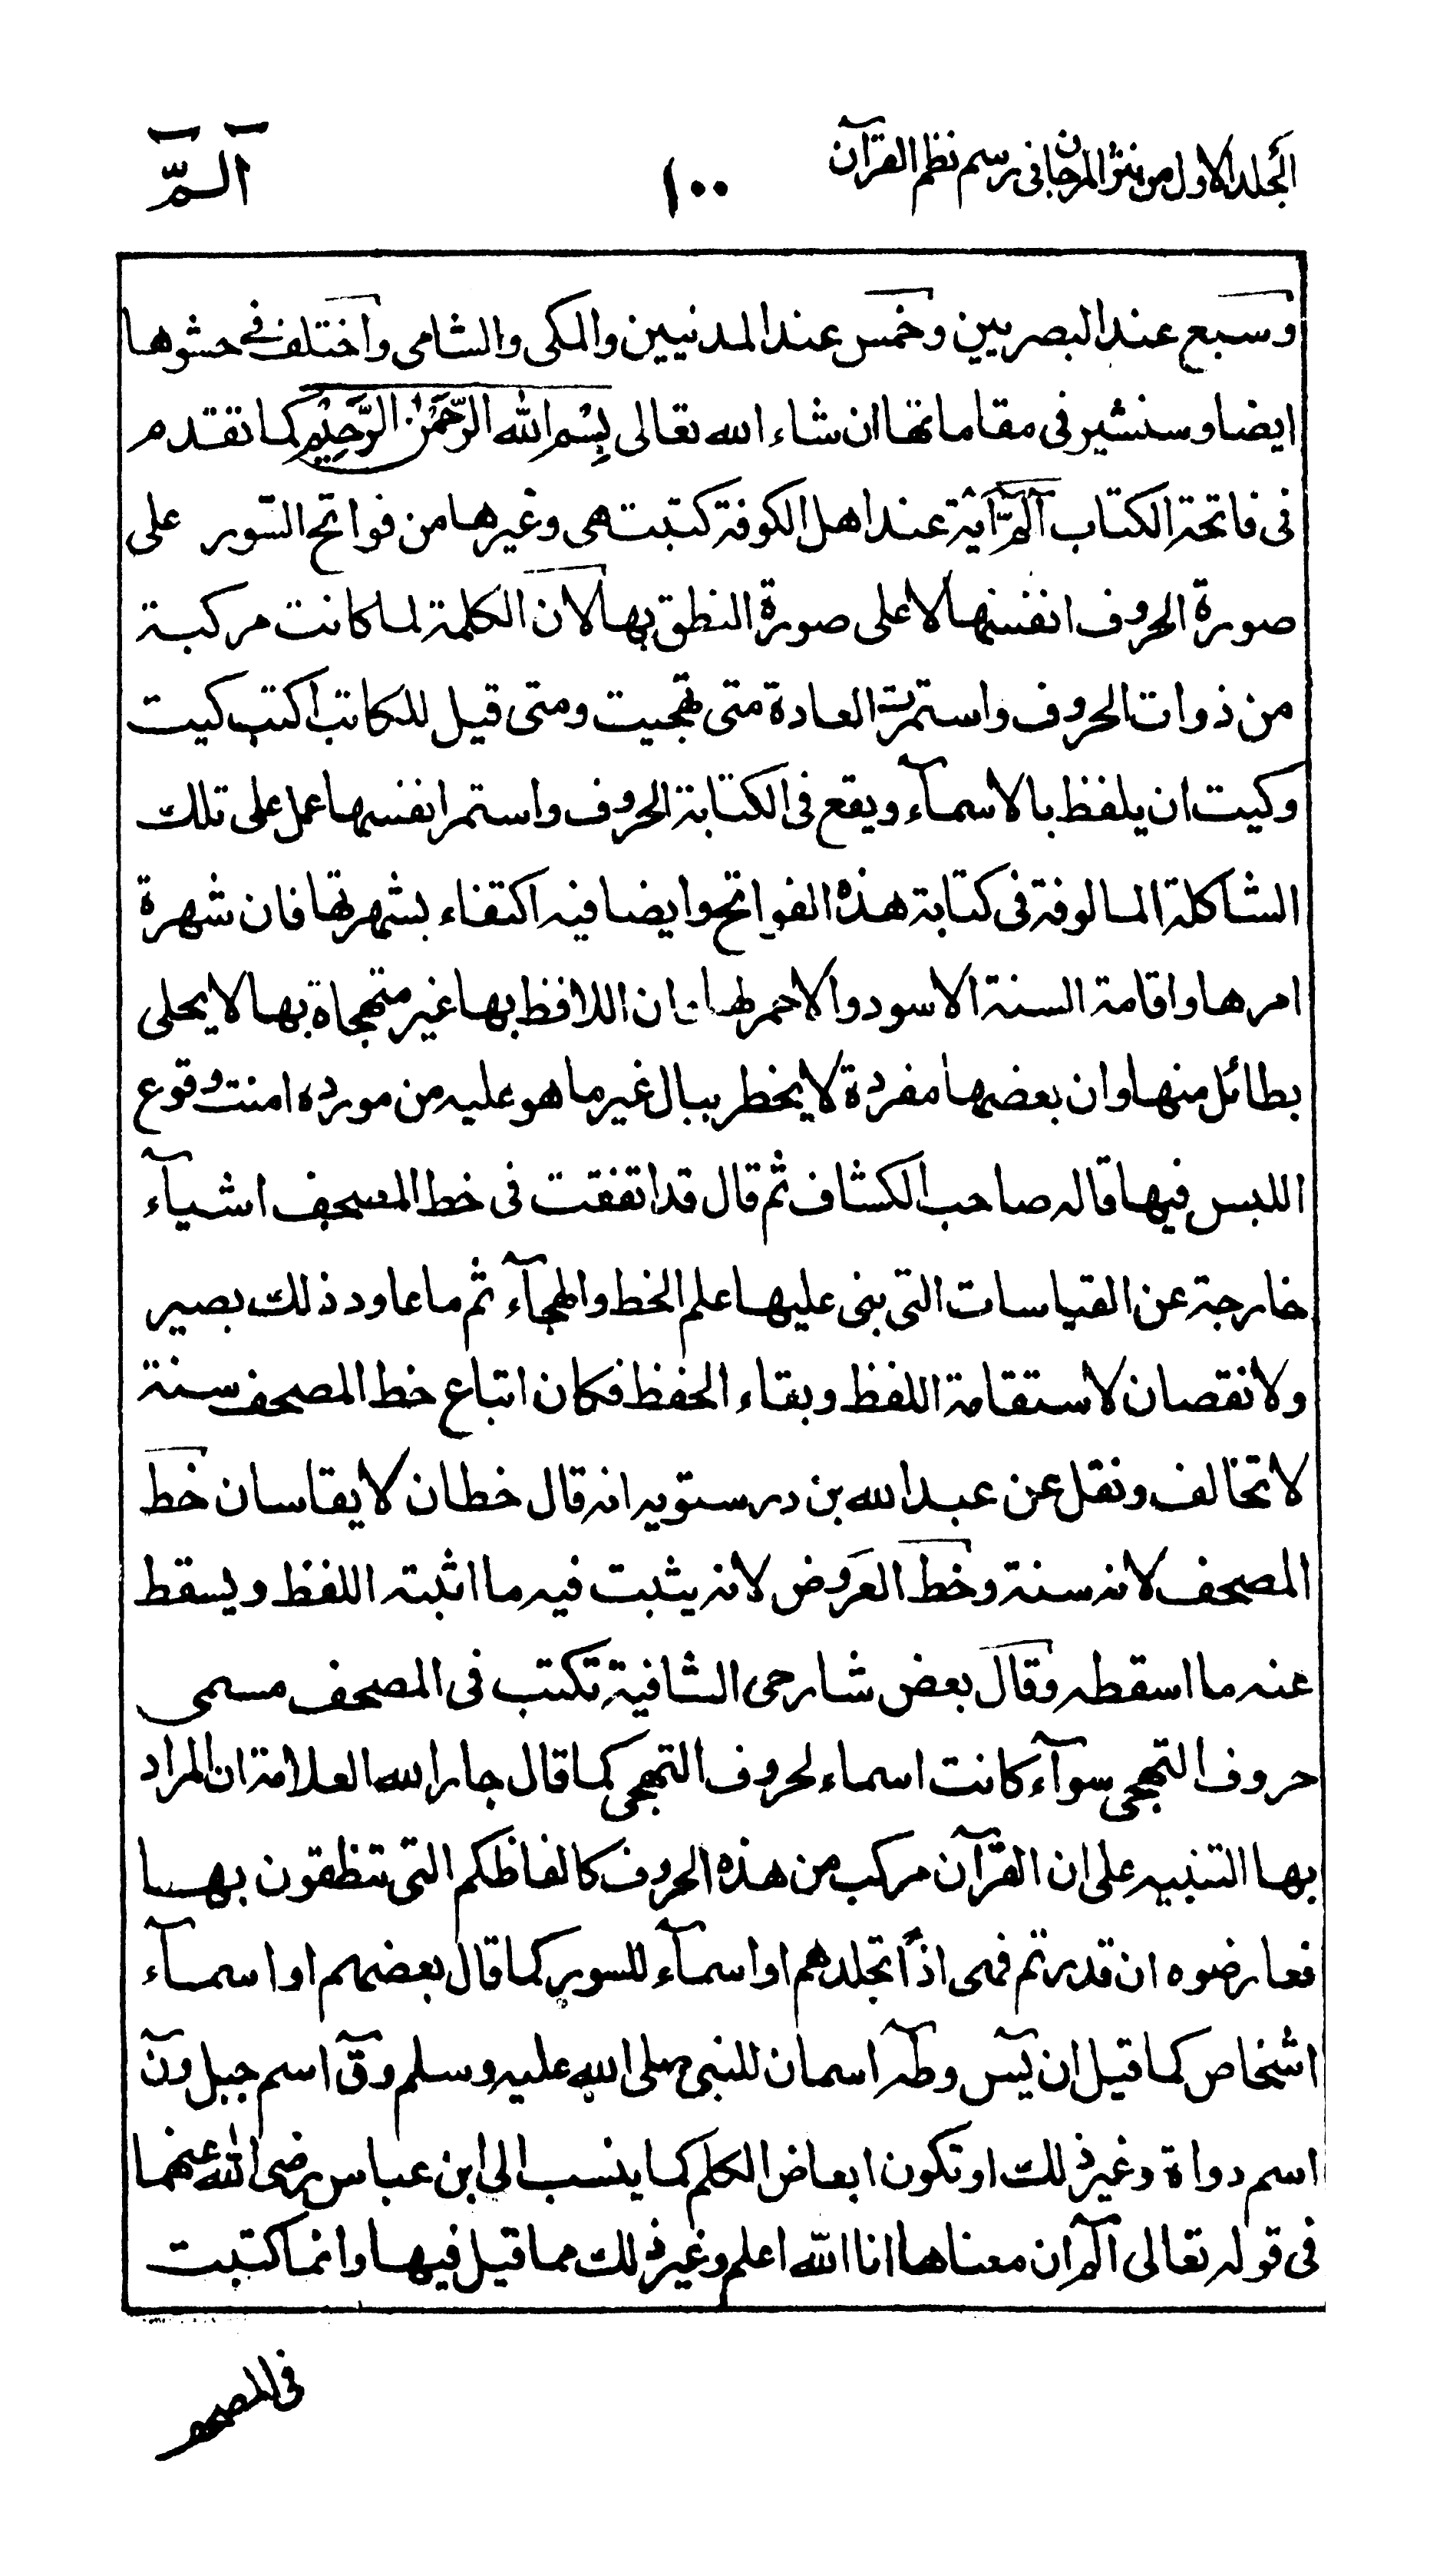 الجلد الاول من نثر المرجان فى رسم نظم القرآن
١٠٠
آلـمّ
وسبع عند البصريين وخمس عند المدنيين والمكى والشامى واختلف فے حشوها
ايضا وسنشير فى مقاماتها ان شاء الله تعالى بِسْمِ اللهِ الرَّحْمٰنِ الرَّحِيْمِ كما تقدم
فى فاتحة الكتاب آلمّٓ آية عند اهل الكوفة كتبت هى وغيرها من فواتح السّور على
صورة الحروف انفسها لا على صورة النطق بها لان الكلمة لما كانت مركبة
من ذوات الحروف واستمرت العادة متى تهجيت ومتى قيل للكاتب اكتب كيت
وكيت ان يلفظ بالاسمآء ويقع فى الكتابة الحروف واستمر انفسها عمل على تلك
الشاكلة المالوفة فى كتابة هذه الفواتح وايضا فيه اكتفاء بشهرتها فان شهرة
امرها واقامة السنة الاسود والاحمر لها وان اللافظ بها غير متهجاة بها لا يحلى
بطائل منها وان بعضها مفردة لا يخطر ببال غير ما هو عليه من مورده امنت وقوع
اللبس فيها قاله صاحب الكشاف ثم قال قد اتفقت فى خط المصحف اشيآء
خارجة عن القياسات التى بنى عليها علم الخط والهجآء ثم ما عاود ذلك بصير
ولا نقصان لاستقامة اللفظ وبقاء الحفظ فكان اتباع خط المصحف سنة
لا تخالف ونقل عن عبد الله بن درستويه انه قال خطان لا يقاسان خط
المصحف لانه سنة وخط العروض لانه يثبت فيه ما اثبته اللفظ ويسقط
عنه ما اسقطه وقال بعض شارحى الشافية تكتب فى المصحف مسمى
حروف التهجى سوآء كانت اسماء لحروف التهجى كما قال جار الله العلامة ان المراد
بها التنبيه على ان القرآن مركب من هذه الحروف كالفاظكم التى تنظقون بها
فعارضوه ان قدرتم فهى اذًا تجلدهم او اسمآء للسور كما قال بعضهم او اسمآء
اشخاص كما قيل ان يٓس وطٓه اسمان للنبى صلى الله عليه وسلم وقٓ اسم جبل ونٓ
اسم دواة وغير ذلك او تكون ابعاض الكلم كما ينسب الى ابن عباس رضى الله عنهما
فى قوله تعالى آلٓم ان معناها انا الله اعلم وغير ذلك مما قيل فيها وانما كتبت
فى المصحف